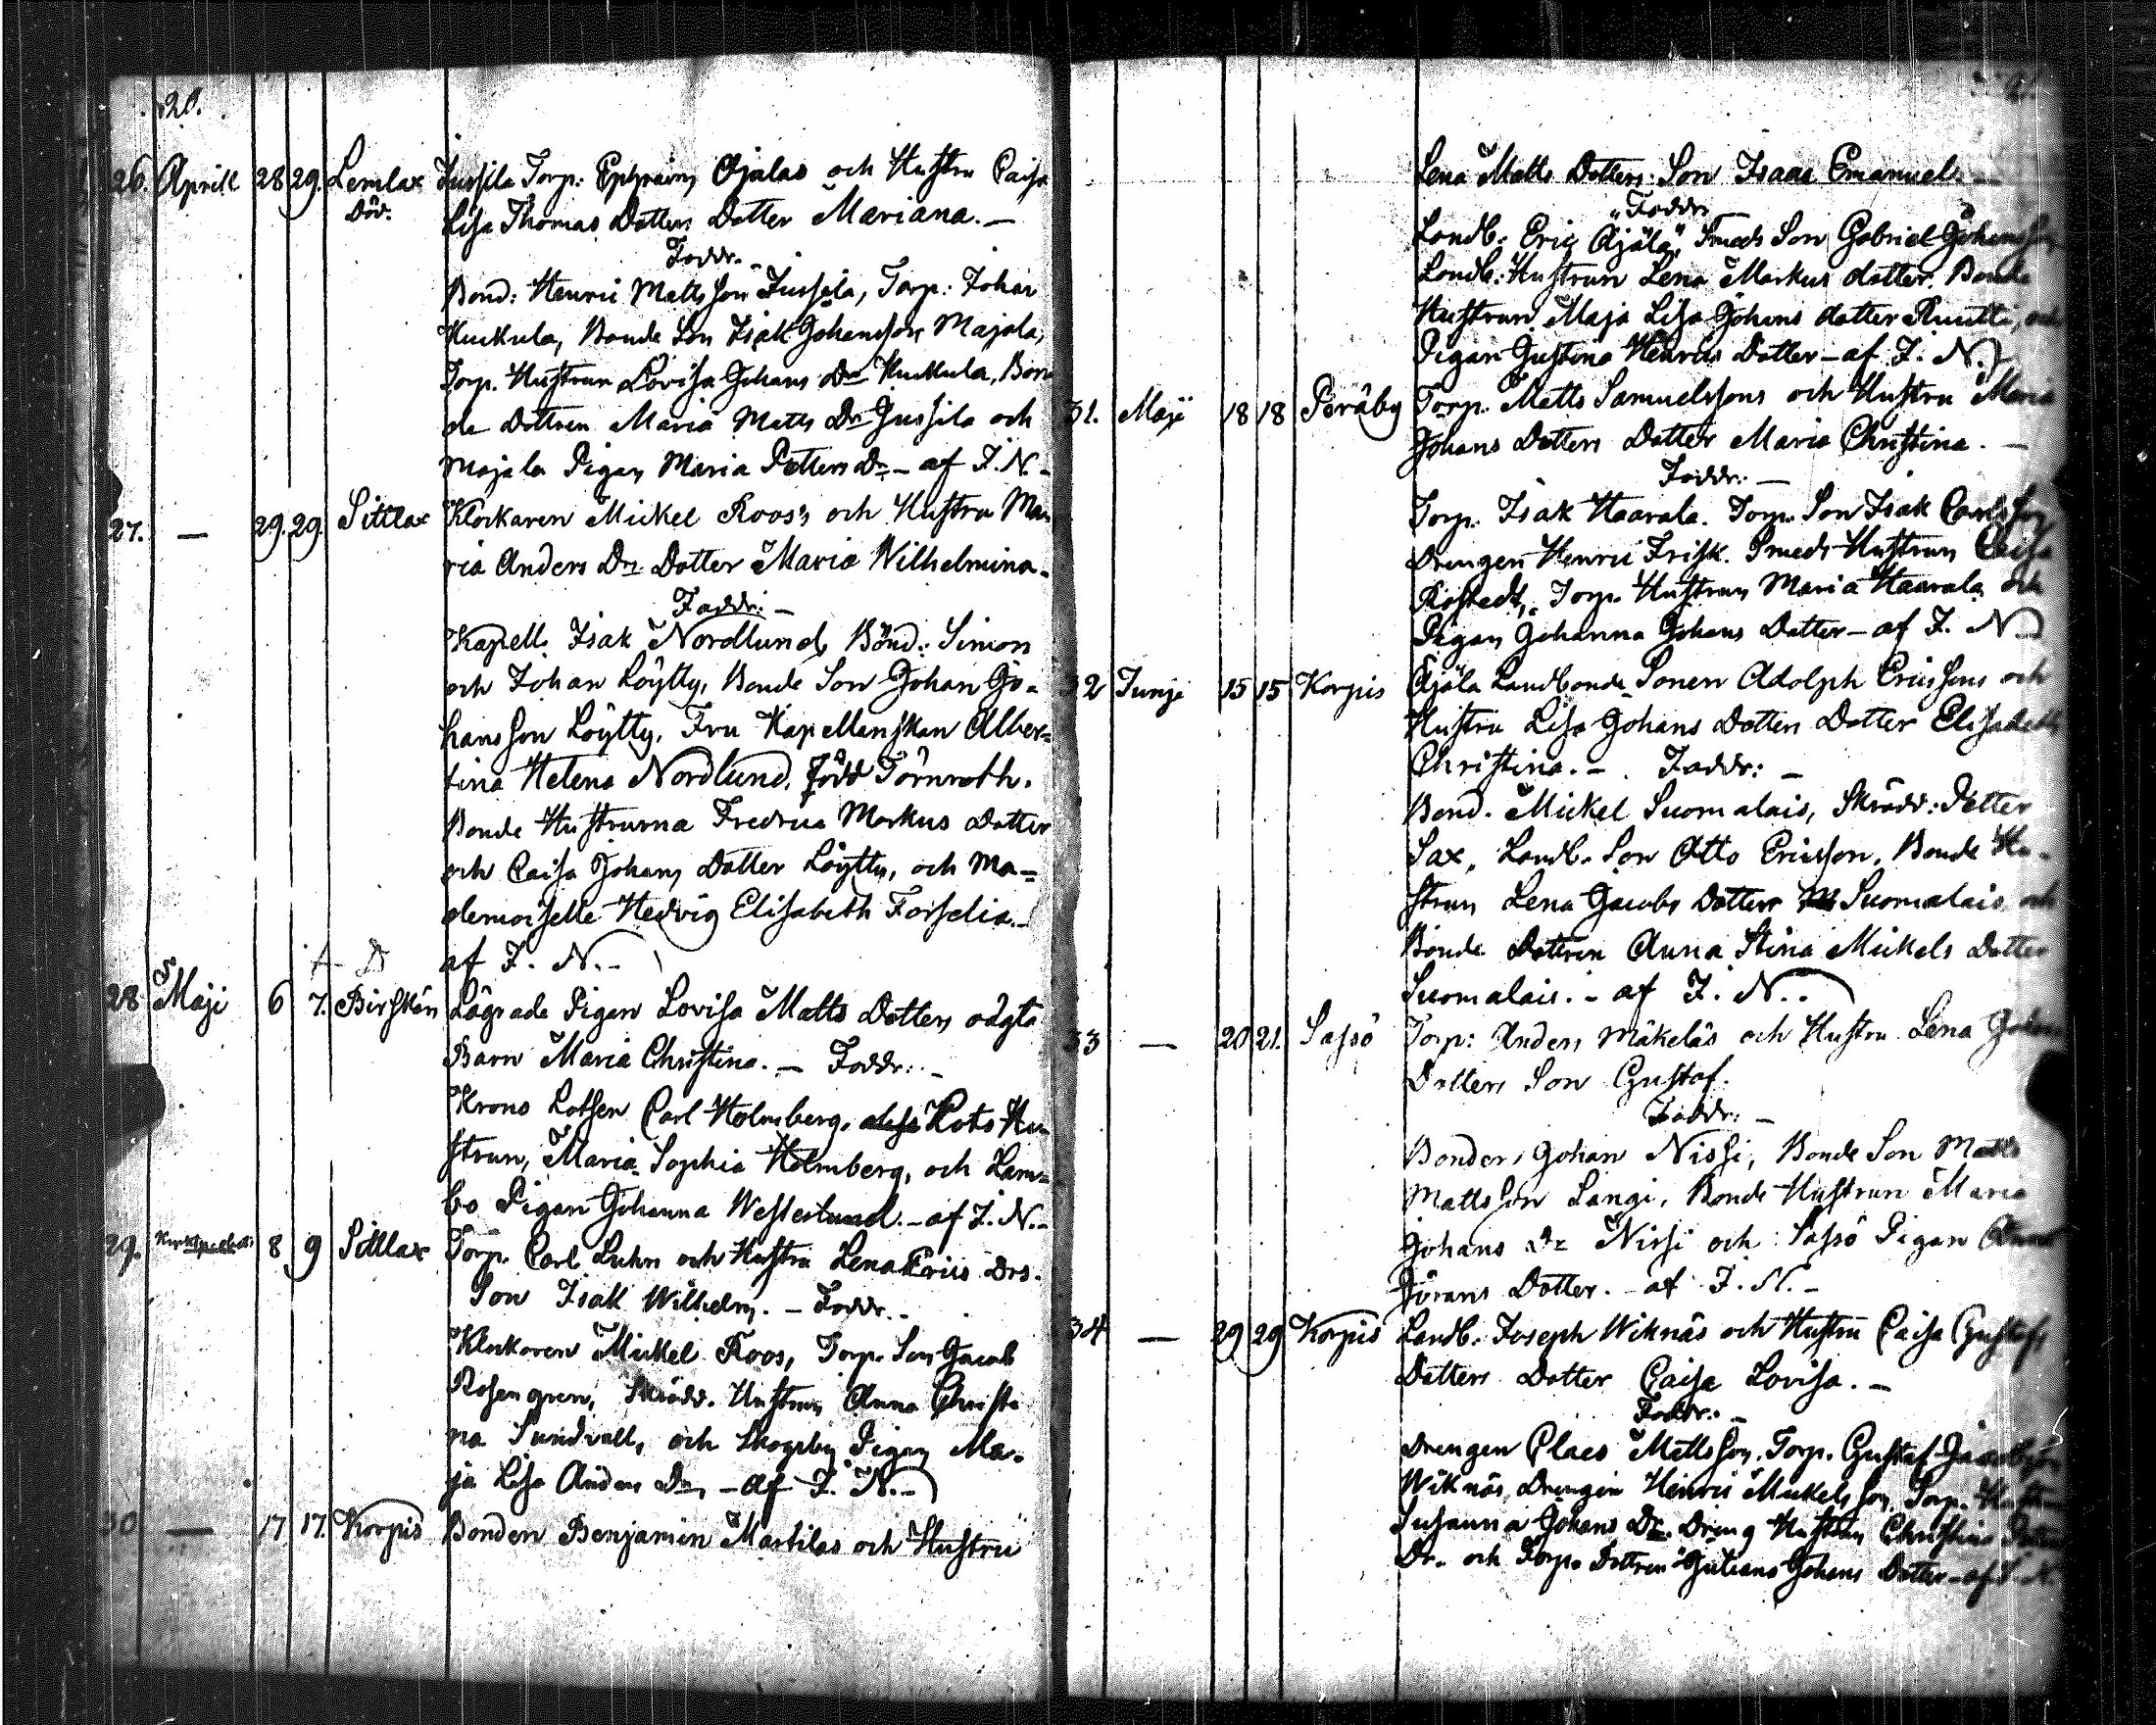 20.
26. Aprill 28 29. Lemlax Jussila Torp: Ephraim Ojalas och Hustru Caisa
Död. Lisa Thomas Dotters Dotter Mariana. —
Faddr. -
Bond: Henric Mattsson Jussila, Torp: Johan
Kuckula, Bonde Son Isak Johansson Majala,
Torp. Hustrun Lovisa Johans Dr Kuckula, Bon
de Dottren Maria Matts Dr Jussila och
Majala Pigan Maria Petters Dr - af I. N. -
27. — 29. 29. Sittlax Klockaren Mickel Roos's och Hustru Ma
ria Anders Drs Dotter Maria Wilhelmina.
Faddr: -
Kapell. Isak Nordlund, Bönd: Simon
och Johan Löytty, Bonde Son Johan Jo=
hansson Löytty, Fru Kapellanskan Alber=
tina Helena Nordlund, född Törnroth.
Bonde Hustrurna Fredrica Markus Dotter
och Caisa Johans Dotter Löytty, och Ma=
demoiselle Hedvig Elisabeth Forselia. -
af I. N. -
28 Maji 6 7. Birskär Lägrade Pigan Lovisa Matts Dotters oägta
Barn Maria Christina. — Faddr: -
Krono Lotsen Carl Holmberg, Lots Hu
strun, Maria Sophia Holmberg, och Lam=
bo Pigan Johanna Westerlund. - af I. N. -
29. 8 9 Sittlax Torp. Carl Luhn och Hustru Lena Erics Drs.
Son Isak Wilhelm. - Faddr. -
Klockaren Mickel Roos, Torp. Son Jacob
Rosengren, Skrädd. Hustrun Anna Christi
na Sundvall, och Skogsby Pigan Ma=
ja Lisa Anders Dr, - af I. N. -
30 — 17 17. Korpis Bonden Benjamin Martilas och Hustru
Lena Matts Dotters Son Isaac Emanuel. —
Faddr
Landb: Eric Äjälä, Smeds Son Gabriel Johansson
Landb: Hustrun Lena Markus dotter. Bonde
Hustrun Maja Lisa Johans dotter Knutti, och
Pigan Gustina Henrics Dotter - af I. N.
31. Maji 18 18 Peräby Torp. Matts Samuelssons och Hustru Maria
Johans Dotters Dotter Maria Christina. —
Faddr: —
Torp. Isak Haarala. Torp. Son Isak Carlsson
Drengen Henric Frisk. Smeds Hustrun Caisa
Rostedt, Torp. Hustrun Maria Haarala och
Pigan Johanna Johans Dotter - af I. N.
32 Junji 15 15 Korpis Äjälä Landbonde Sonen Adolph Ericssons och
Hustru Lisa Johans Dotters Dotter Elisabeth
Christina. - Faddr: -
Bond. Mickel Suomalais, Skrädd: Petter
Sax, Landb. Son Otto Ericsson, Bonde Hu=
strun Lena Jacobs Dotter Suomalais och
Bonde Dottren Anna Stina Mickels Dotter
Suomalais. - af I. N. -
33 — 20 21. Sassö Torp: Anders Mäkeläs och Hustru Lena Johans
Dotters Son Gustaf.
Faddr: -
Bonden Johan Nissi, Bonde Son Matts
Mattsson Langi, Bonde Hustrun Maria
Johans Dr Nissi och Sassö Pigan Anna
Görans Dotter. - af I. N. -
34 — 29 29 Korpis Landb. Joseph Wiknäs och Hustru Caisa Gustafs
Dotters Dotter Caisa Lovisa. —
Faddr: -
Drengen Claes Mattsson, Torp. Gustaf Jacobsson
Wiknäs, Drengen Henric Mickelsson, Torp. Hustrun
Susanna Johans Dr. Dreng Hustrun Christina Petters
Dr. och Torp. Dottren Juliana Johans Dotter - af I. N.